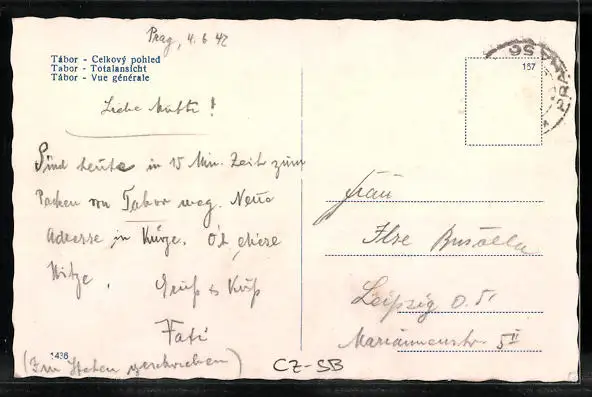 Prag, 4.6.42
Tábor - Celkový pohled
Tabor - Totalansicht
Tábor - Vue générale
167
Liebe Mutti!
Sind heute in 15 Min. Zeit zum
Packen von Tabor weg. Neue
Adresse in Kürze. O, diese
Hitze. Gruß & Kuß
Fati
(Im Stehen geschrieben)
1436
CZ-SB
Frau
Ilse
Leipzig O.5.
Mariannenstr. 5 II